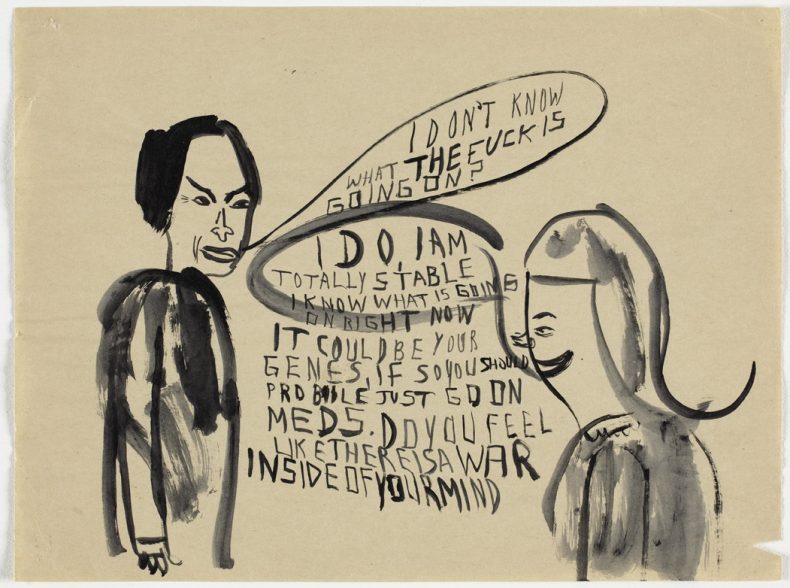 I DON'T KNOW
WHAT THE FUCK IS
GOING ON?
I DO, I AM
TOTALLY STABLE
I KNOW WHAT IS GOING
ON RIGHT NOW
IT COULD BE YOUR
GENES, IF SO YOU SHOULD
PROBBLE JUST GO ON
MEDS. DO YOU FEEL
LIKE THERE IS A WAR
INSIDE OF YOUR MIND